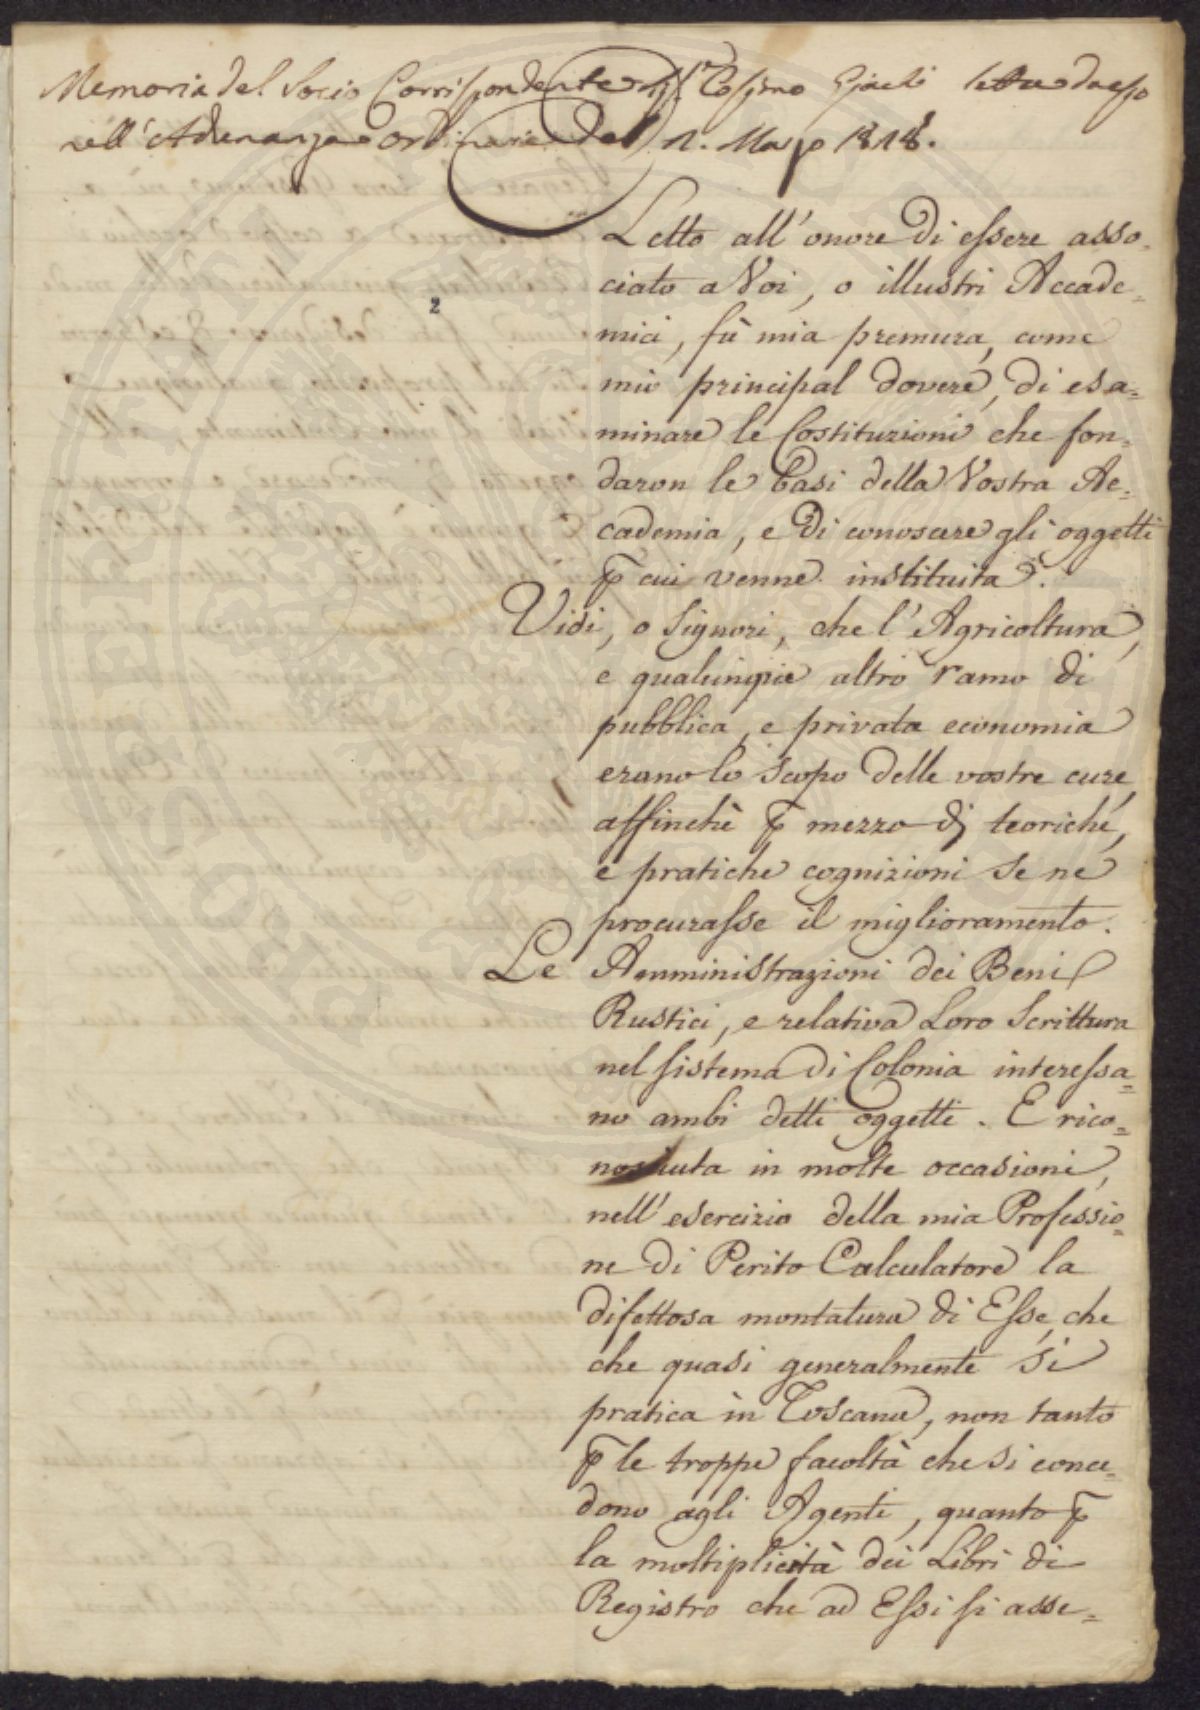 Memoria del Socio Corrispondente Sig.r Cosimo letta da esso
nell'Adunanza ordinaria del 1. Marzo 1818.
2
Letto all'onore di essere asso=
ciato a Voi, o illustri Accade=
mici, fù mia premura, come
mio principal dovere, di esa=
minare le Costituzioni che fon=
daron le basi della Vostra Ac=
cademia, e di conoscere gli oggetti
p cui venne instituita.
Vidi, o Signori, che l'Agricoltura,
e qualunque altro ramo di
pubblica, e privata economia
erano lo scopo delle vostre cure,
affinchè p mezzo di teoriche,
e pratiche cognizioni se ne
procurasse il miglioramento.
Le Amministrazioni dei Beni
Rustici, e relativa Loro Scrittura
nel sistema di Colonia interessa=
no ambi detti oggetti. E rico=
nosciuta in molte occasioni,
nell'esercizio della mia Professio=
ne di Perito Calculatore la
difettosa montatura di Esse, che
che quasi generalmente si
pratica in Toscana, non tanto
p le troppe facoltà che si conce=
dono agli Agenti, quanto p
la moltiplicità dei Libri di
Registro che ad Essi si asse=